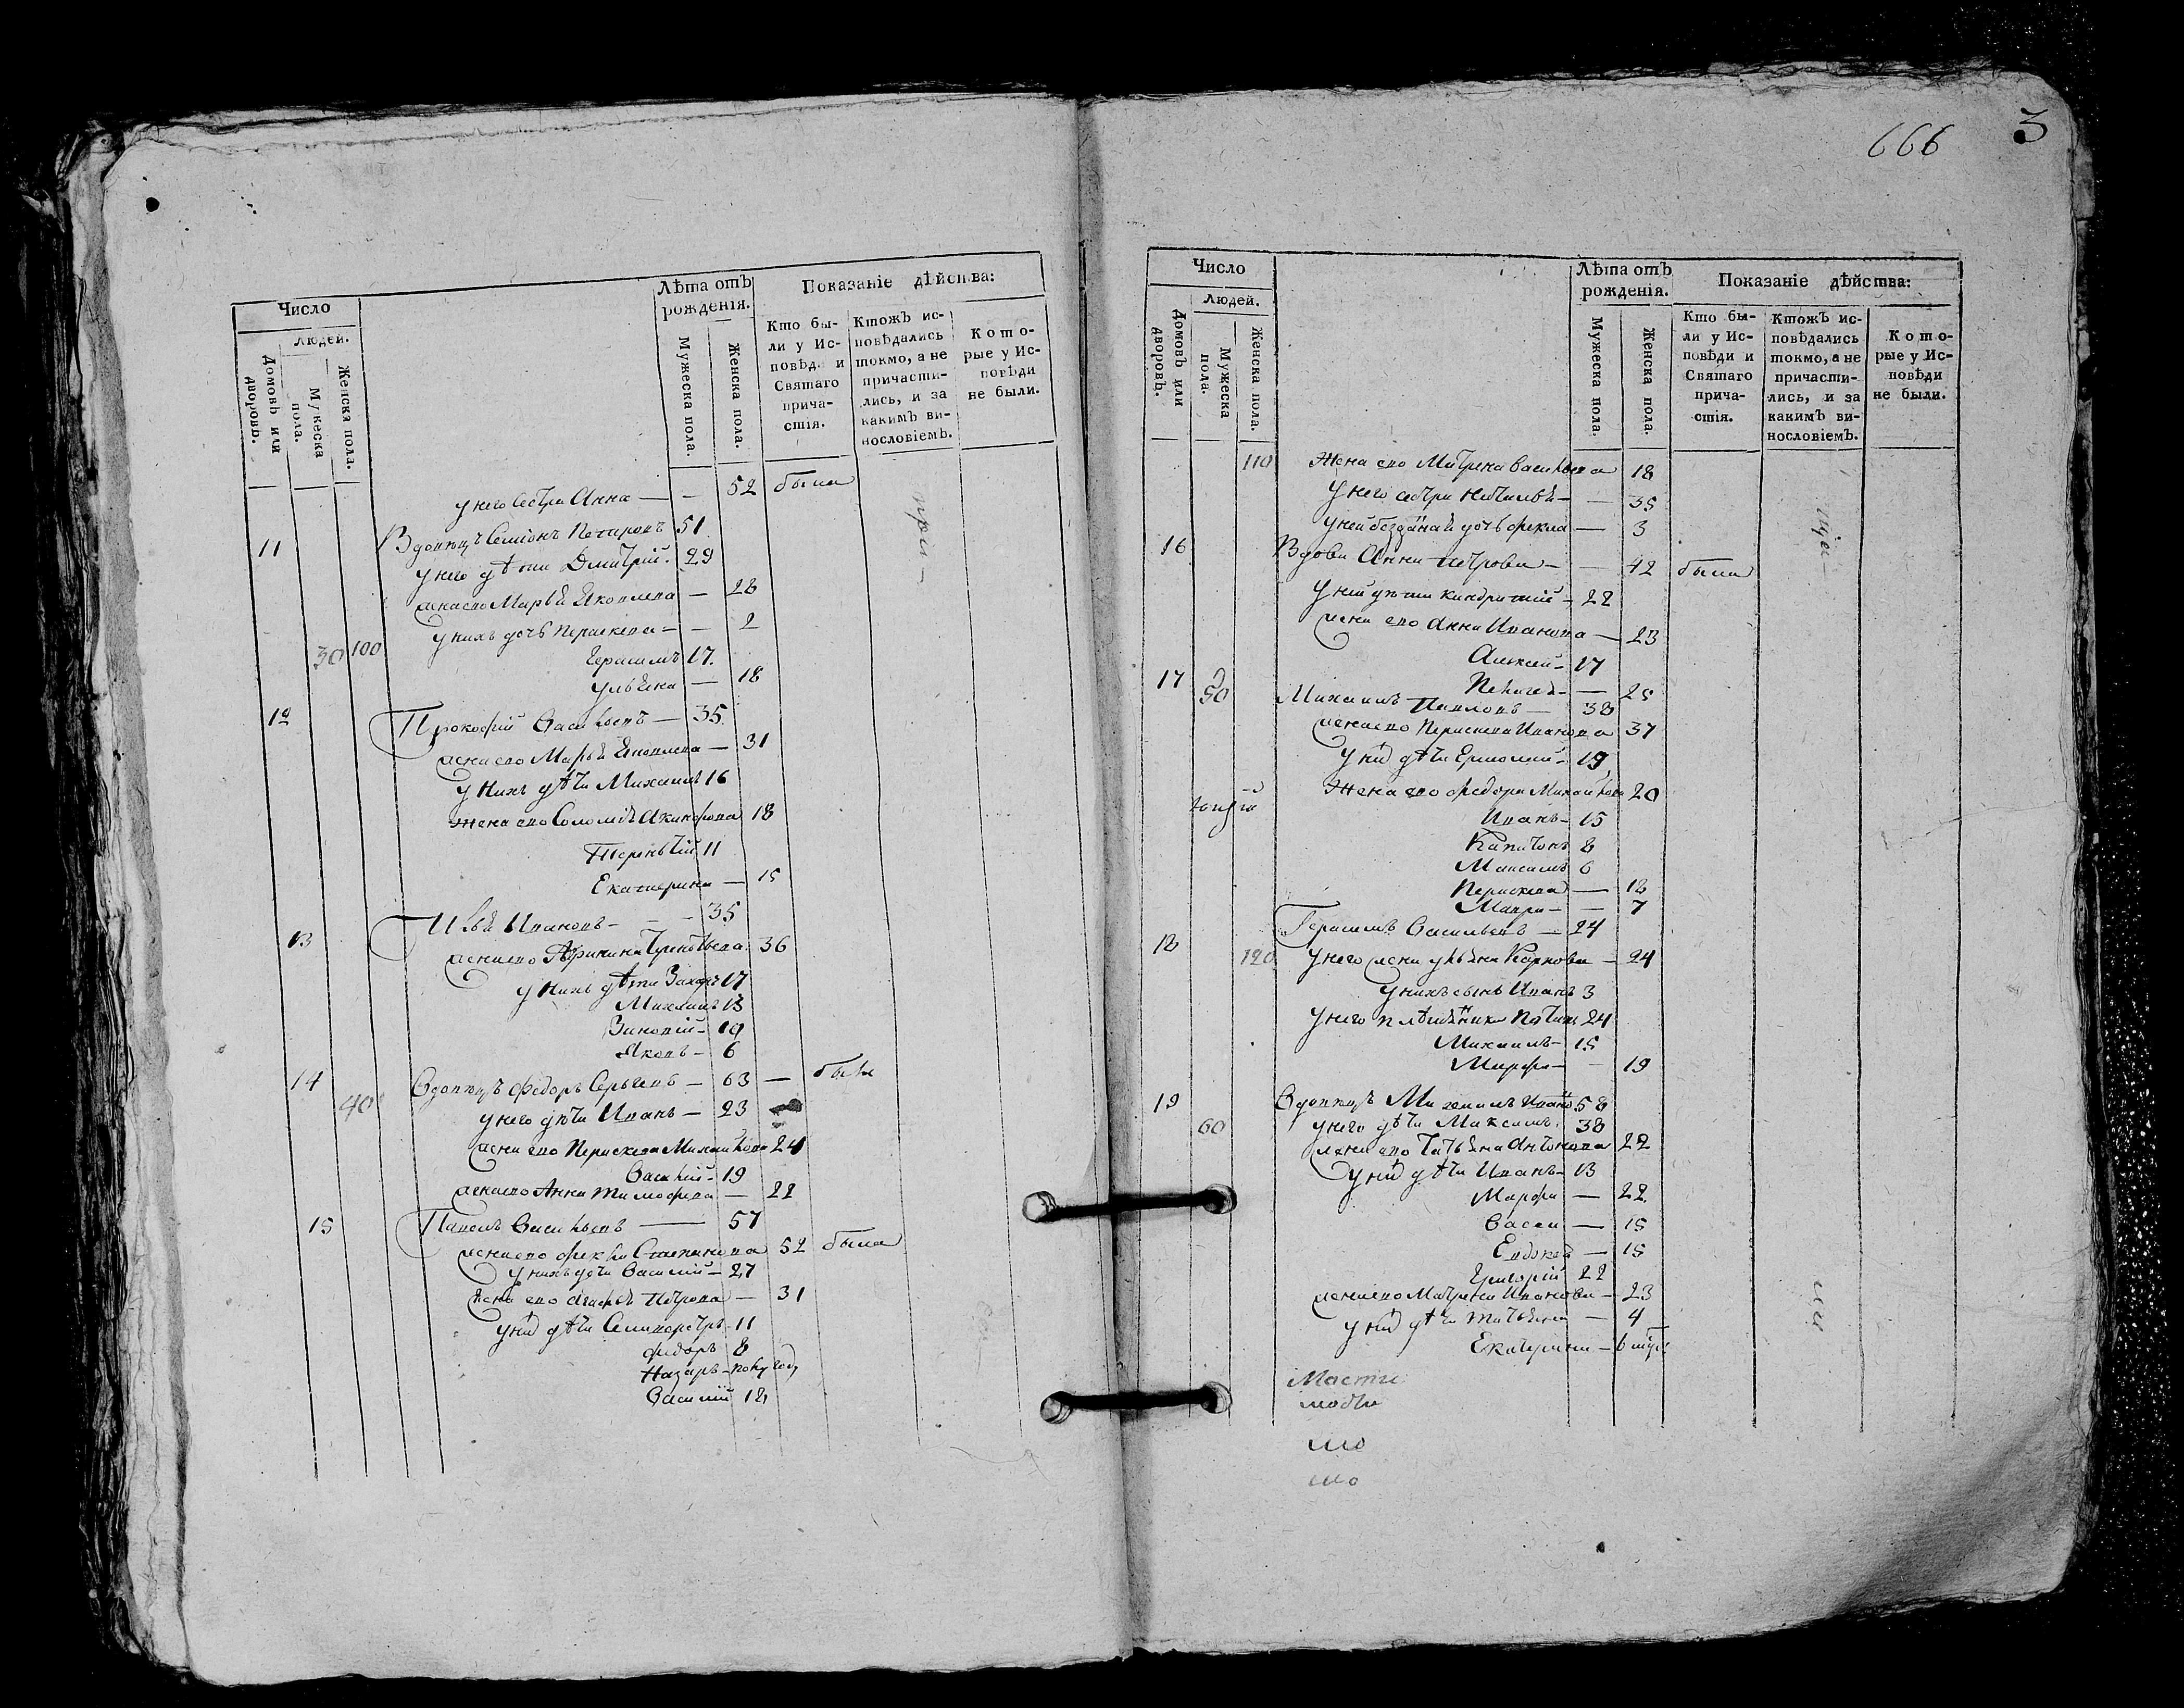 Число
Людей.
Домовъ или дворовъ.
Мужеска пола.
Женска пола.
Лѣта отъ рожденія.
Мужеска пола.
Женска пола.
Показаніе дѣйства:
Кто бы-
ли у Ис-
повѣди и
Святаго
прича-
стія.
Ктожъ ис-
повѣдались
токмо, а не
причасти-
лись, и за
какимъ ви-
нословіемъ.
Кото-
рые у Ис-
повѣди
не были.
у него сестра Анна — — 52 была
11 Вдовецъ Семіонъ 51
у него дѣти Дмитрій. 29
жена его Марья Яковлева — 28
у нихъ дочь Параскева — — 2
30 100
Герасимъ 17.
Ульяна — 18
12 Прокофій Васильевъ — 35
жена его Марья Яковлева — 31
у нихъ дѣти Михаилъ 16
жена его Соломія 18
Терентій 11
Екатерина — 15
13 Илья Ивановъ — — 35
жена его 36
у нихъ дѣти Захаръ 17
Михаилъ 13
Зиновій — 10
Яковъ — 6
14 Вдовецъ Федоръ Сергѣевъ — 63 — былъ
40 у него дѣти Иванъ — 23
жена его Параскева Михайлова 24
Василій — 19
жена его Анна Тимофеева — 22
15 Павелъ Васильевъ — 57
жена его Фекла Степанова 52 была
у нихъ дѣти Василий — 27
жена его Агафья Петрова — 31
у них дѣти Селиверстръ — 11
Федоръ 8
Назаръ — полугоду
Василий 12
при-
666 3
Число
Людей.
Домовъ или дворовъ.
Мужеска пола.
Женска пола.
Лѣта отъ
рожденія.
Мужеска пола.
Женска пола.
Показаніе дѣйства:
Кто бы-
ли у Ис-
повѣди и
Святаго
прича-
стія.
Ктожъ ис-
повѣдались
токмо, а не
причасти-
лись, и за
какимъ ви-
нословіемъ.
Кото-
рые у Ис-
повѣди
не были.
110 Жена его Матрена Васильева 18
у него сестра Наталья — — 35
у ней дочь Фекла — 3
16 Вдова Анна Петрова — — 42 была
у ней дѣти Киндратий — 22
жена его Анна Иванова — 23
Алексей — 17
Пелагея — — 25
17 50 Михаилъ Павловъ — 38
жена его Параскева Иванова 37
у них дѣти Ермолай — 19
Жена его Федора Михайлова 20
Иванъ — 15
Капитонъ 8
Максимъ 6
Параскева — 12
Мавра — — 7
18 Герасимъ Васильевъ — 24
120 у него жена Ульяна Карпова — 24
у нихъ сынъ Иванъ 3
у него 24
Михаилъ — 15
Марфа — — 19
19 Вдовецъ 58
60 у него дѣти Максимъ. 38
жена его Татьяна Антонова 22
у них дѣти Иванъ — 13
Марфа — 22
Васса — 15
Евдокея — 15
Григорій 22
жена его Матрена Иванова — 23
у них дѣти Татьяна — 4
Екатерина — 6